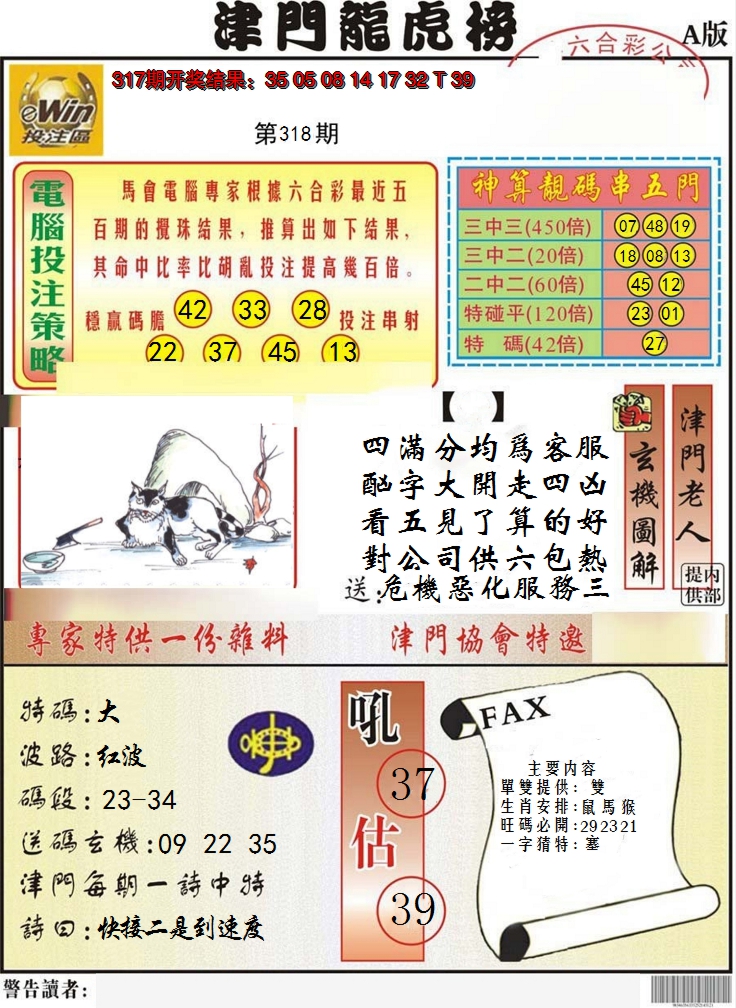 津門龍虎榜
A版
六合彩公
317期开奖结果：35 05 08 14 17 32 T 39
eWin
投注區
第318期
電腦投注策略
馬會電腦專家根據六合彩最近五
百期的攪珠结果，推算出如下结果，
其命中比率比胡亂投注提高幾百倍。
穩贏碼膽 42 33 28 投注串射
22 37 45 13
神算靚碼串五門
三中三(450倍) 07 48 19
三中二(20倍) 18 08 13
二中二(60倍) 45 12
特碰平(120倍) 23 01
特 碼(42倍) 27
【 】
四滿分均爲客服
酗字大開走四凶
看五見了算的好
對公司供六包熱
送:危機惡化服務三
玄機圖解
津門老人
内部提供
專家特供一份雜料
津門協會特邀
特碼:大
波路:红波
碼段:23-34
送碼玄機:09 22 35
津門每期一詩中特
詩曰:快接二是到速度
吼
37
估
39
FAX
主要内容
單雙提供：雙
生肖安排:鼠馬猴
旺碼必開:292321
一字猜特：塞
警告讀者：